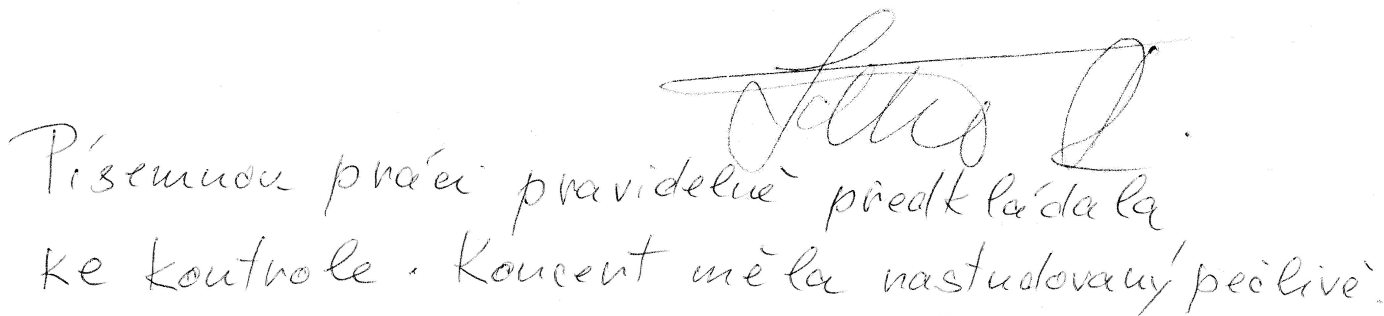 Písemnou práci pravidelně předkládala
ke kontrole. Koncert měla nastudovaný pečlivě.